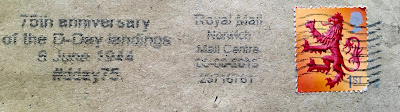 75th anniversary
of the D-Day landings
6 June 1944
#dday75
Royal Mail
Norwich
Mail Centre
06-06-2019
23716761
1ST